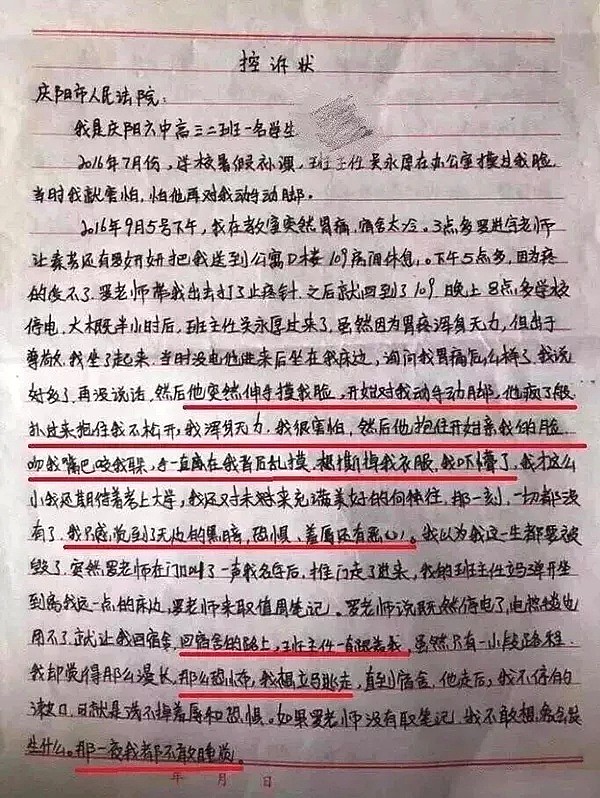 控诉状
庆阳市人民法院：
我是庆阳六中高三二班一名学生
2016年7月份，学校暑假补课，班主任吴永厚在办公室摸过我脸
当时我就害怕，怕他再对我动手动脚。
2016年9月5号下午，我在教室突然胃痛，宿舍太冷。3点多罗进宇老师
让秦芳还有罗妍妍把我送到公寓D楼109病阁休息。下午5点多，因为疼
的受不了，罗老师带我出去打了止疼针，之后就回到了109，晚上8点多学校
停电，大木既半小时后，班主任吴永厚过来了，虽然因为胃疼浑身无力，但出于
尊敬，我坐了起来，当时没电他进来后坐在我床边，询问我胃痛怎么样了，我说
好多了，再没说话，然后他突然伸手摸我脸，开始对我动手动脚，他疯了般
扑过来抱住我不松开，我浑身无力，我很害怕，然后他抱住开始亲我的脸
吻我嘴巴咬我耳朵，手一直在我背后乱摸，想撕掉我衣服，我吓懵了，我才这么
小我还期待着考上大学，我还对未来充满美好的向往，那一刻，一切都没
有了，我只感觉到了无边的黑暗，恐惧、羞辱还有恶心。我以为我这一生都要被
毁了，突然罗老师在门口叫了一声我名字后，推门走了进来，我的班主任立马弹开坐
到离我远一点的床边，罗老师来取值周笔记。罗老师说既然停电了，电热毯也
用不了，就让我回宿舍，回宿舍的路上，班主任一直跟着我，虽然只有一小段路程
我却觉得那么漫长，那么恐怖，我想立马逃走，直到宿舍，他走后，我不停的
漱口，可就是洗不掉羞辱和恐惧。如果罗老师没有取笔记，我不敢想象会发
生什么。那一夜我都不敢睡觉。
年 月 日